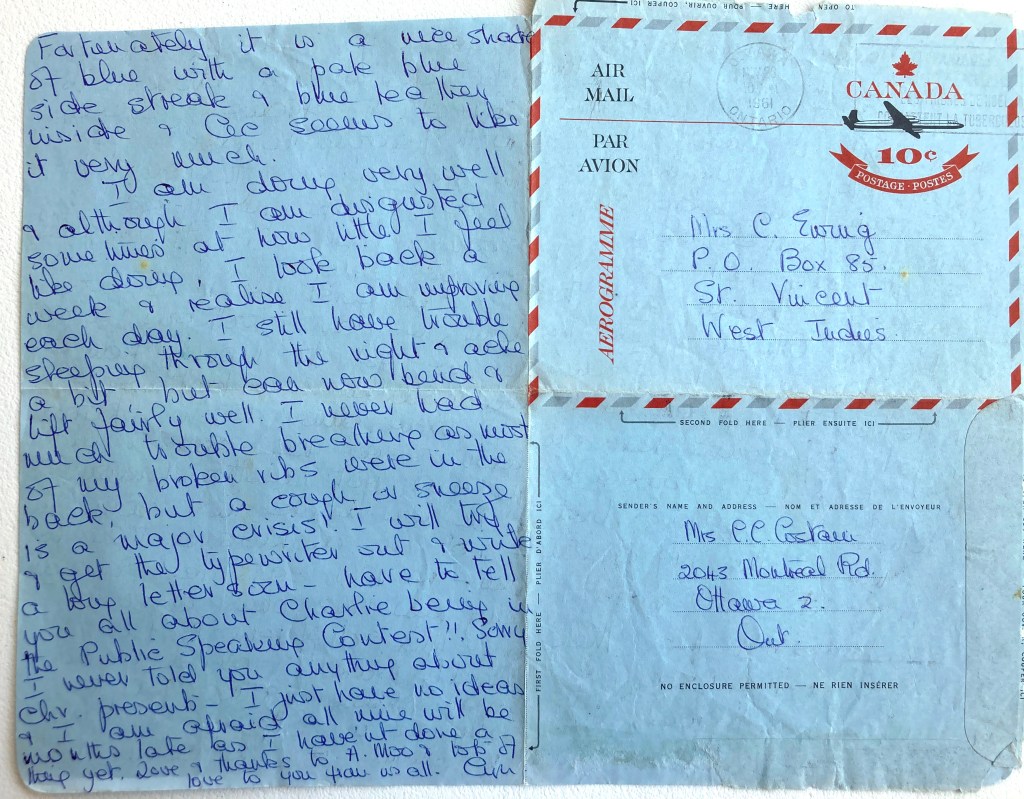 Fortunately it is a nice shade
of blue with a pale blue
side streak & blue leather
inside & Cec seems to like
it very much.
I am doing very well
& although I am disgusted
sometimes at how little I feel
like doing, I look back a
week & realise I am improving
each day. I still have trouble
sleeping through the night & ache
a bit but can now bend &
lift fairly well. I never had
much trouble breathing as most
of my broken ribs were in the
back, but a cough or sneeze
is a major crisis! I will try
& get the typewriter out & write
a long letter soon - have to tell
you all about Charlie being in
the Public Speaking Contest!! Sorry
I never told you anything about
Chr. presents - I just have no ideas
& I am afraid all mine will be
months late as I haven't done a
thing yet. Love & thanks to A. Moo & lots of
love to you from us all.
TO OPEN — HERE — POUR OUVRIR, COUPER ICI
AIR
MAIL
PAR
AVION
AEROGRAMME
1961
ONTARIO
CANADA
10¢
POSTAGE · POSTES
Mrs C. Ewing
P.O. Box 85.
St. Vincent
West Indies.
SECOND FOLD HERE — PLIER ENSUITE ICI
FIRST FOLD HERE — PLIER D'ABORD ICI
SENDER'S NAME AND ADDRESS — NOM ET ADRESSE DE L'ENVOYEUR
Mrs C.C.
2043 Montreal Rd.
Ottawa 2.
Ont.
NO ENCLOSURE PERMITTED — NE RIEN INSÉRER